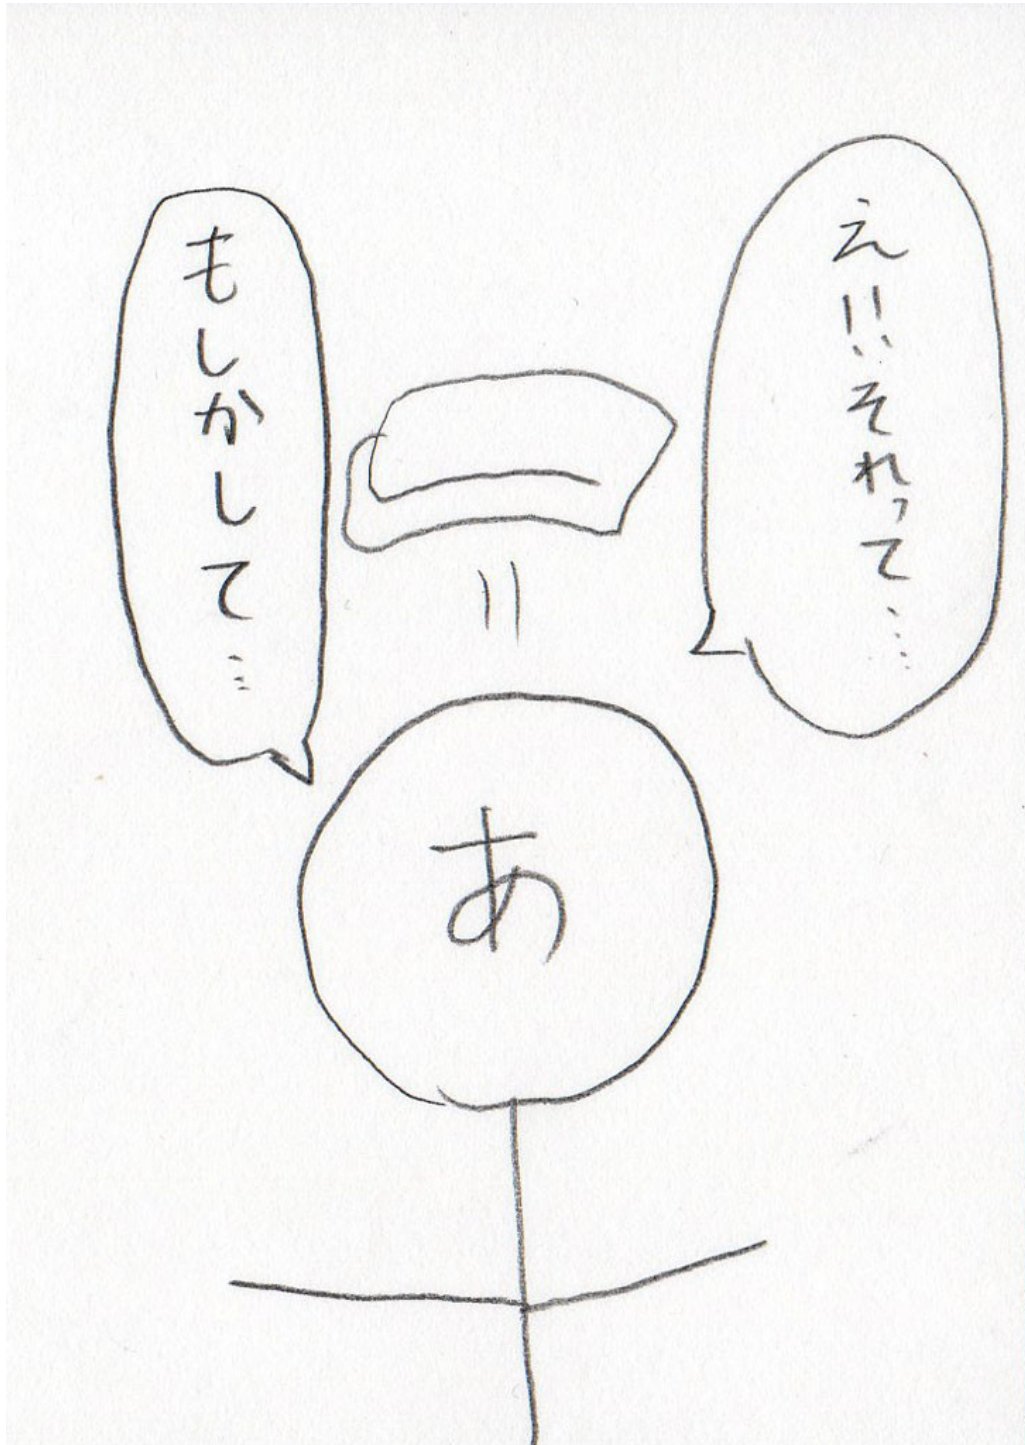 え!!それって…
もしかして…
あ